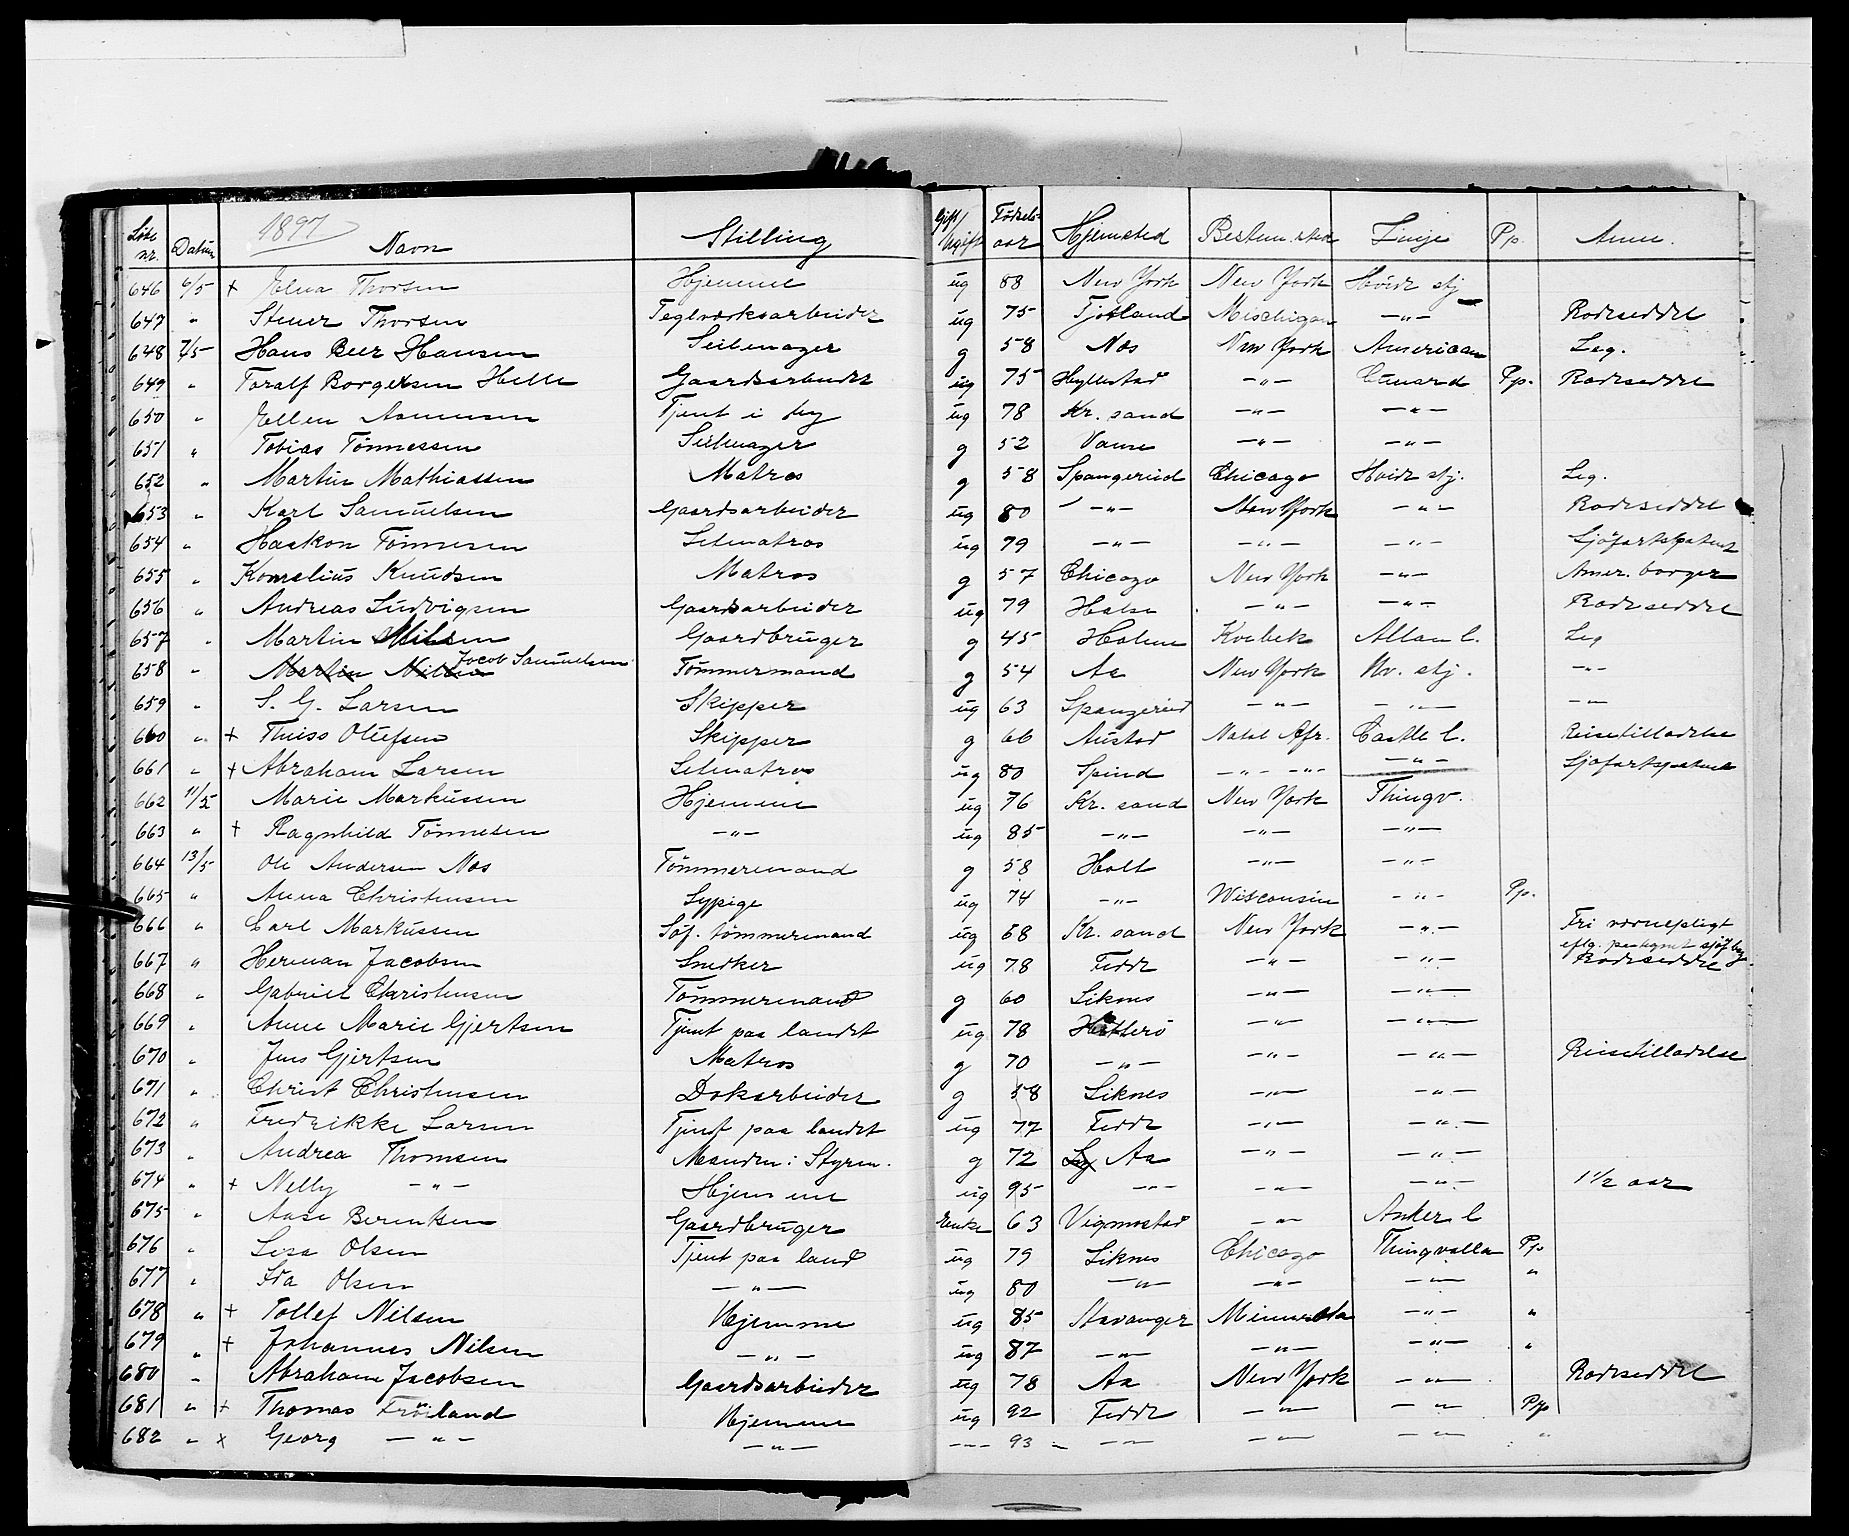 1897
Løbe nr. Datum Navn Stilling Gift/Ugift Fødsels aar Hjemsted Bestem.sted Linje Pp. Anm.
646 6/5 + Elna Thorsen Hjemme ug 88 New York New York Hvide stj
647 " Thorsen Teglværksarbeider ug 75 Tjotland Mischigan —"— Rodeseddel
648 7/5 Hans Beer Hansen Seilmager g 58 Næs New York American Leg.
649 " Toralf Borgersen Helle Gaardsarbeider ug 75 Hyllestad —"— Cunard Pp. Rodeseddel
650 " Ellen Asmunsen Tjent i by ug 78 Kr. sand —"— —"—
651 " Tobias Tønnessen Seilmager g 52 Vanse —"— —"—
652 " Martin Mathiassen Matros g 58 Spangereid Chicago Hvide stj. Leg.
653 " Karl Samuelsen Gaardsarbeider ug 80 —"— New York —"— Rodeseddel
654 " Haakon Tønnesen Letmatros ug 79 —"— —"— —"— Sjøfartspatent
655 " Kornelius Knudsen Matros g 57 Chicago New York —"— Amer. borger
656 " Andreas Ludvigsen Gaardsarbeider ug 79 Halse —"— —"— Rodeseddel
657 " Martin Nilsen Gaardbruger g 45 Holme Kvebek Allan l. Leg
658 " Martin Nilsen Jacob Samuelsen Tømmermand g 54 Aa New York Hv. stj. —"—
659 " S. G. Larsen Skipper ug 63 Spangereid —"— —"— —"—
660 " + Thiiss Olufsen Skipper g 66 Austad Natal Afr. Castle l. Reisetilladelse
661 " + Abraham Larsen Letmatros ug 80 Spind —"— —"— —"— Sjøfartspatent
662 11/5 Marie Markussen Hjemme ug 76 Kr. sand New York Thingv.
663 " + Ragnhild Tønnesen —"— ug 85 —"— —"— —"—
664 13/5 Ole Andersen Næs Tømmermand g 58 Holt —"— —"—
665 " Anna Christensen Sypige ug 74 —"— Wisconsin —"— Pp.
666 " Carl Markussen Søf. tømmermand ug 68 Kr. sand New York —"— Fri værnepligt
eflg. sjøf
667 " Herman Jacobsen Snedker ug 78 Fede —"— —"— Rodeseddel
668 " Gabriel Christensen Tømmermand g 60 Liknes —"— —"—
669 " Anne Marie Gjertsen Tjent paa landet ug 78 Hitterø —"— —"—
670 " Jens Gjertsen Matros g 70 —"— —"— —"— Reisetilladelse
671 " Christ Christensen Dokarbeider g 58 Liknes —"— —"—
672 " Fredrikke Larsen Tjent paa landet ug 77 Fede —"— —"—
673 " Andrea Thomsen Manden: Styrm. g 72 Aa —"— —"—
674 " + Nelly —"— Hjemme ug 95 —"— —"— —"— 1 1/2 aar
675 " Aase Berentsen Gaardbruger Enke 63 Vigmostad —"— Anker l
676 " Lisa Olsen Tjent paa land ug 79 Liknes Chicago Thingvalla Pp
677 " Ida Olsen —"— ug 80 —"— —"— —"— "
678 " + Tollef Nilsen Hjemme ug 85 Stavanger Minnesota —"— "
679 " + Johannes Nilsen —"— ug 87 —"— —"— —"— "
680 " Abraham Jacobsen Gaardsarbeider ug 78 Aa New York —"— Rodeseddel
681 " + Thomas Frøiland Hjemme ug 92 Fede —"— —"— Pp
682 " x Georg —"— —"— —"— 93 —"— —"— —"— "